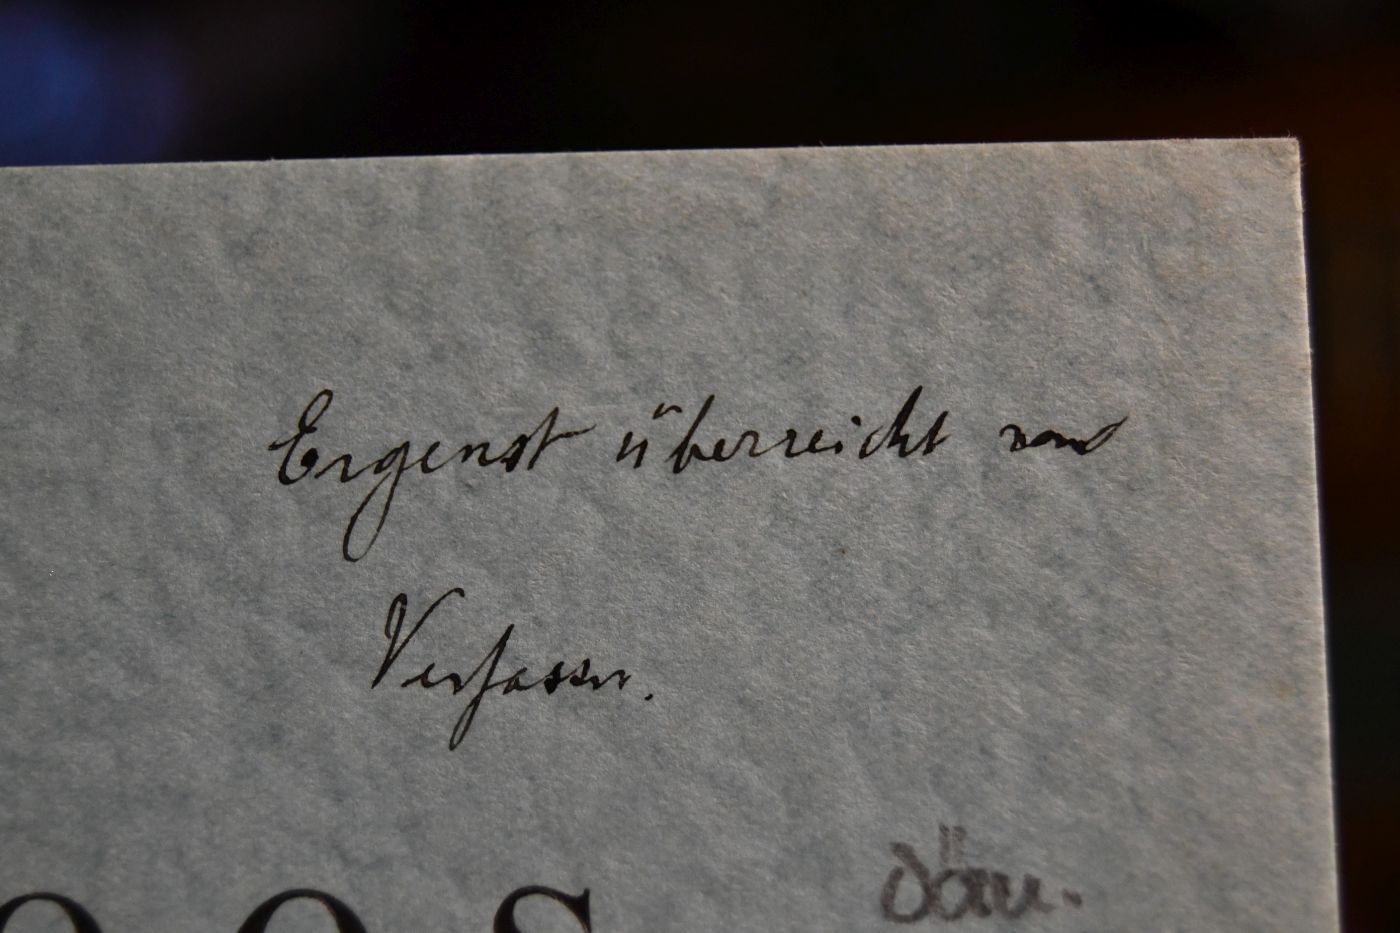 Ergenst überreicht vom
Verfasser.
OOS